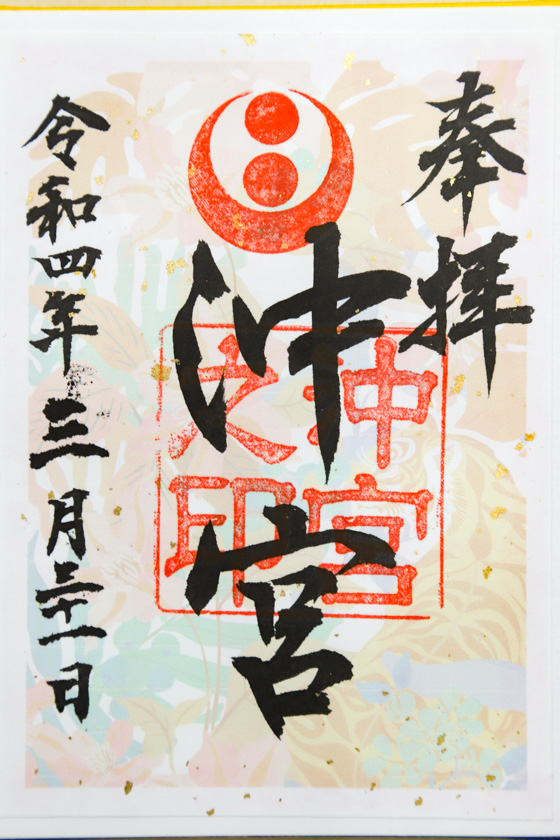 奉拝
沖宮
沖宮
之印
令和四年三月二十一日